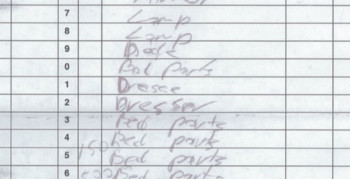 7 Lamp
8 Lamp
9
0 Bed Parts
1 Dresse
2 Dresser
3 Bed parts
4 Bed parts
5 Bed parts
6 Bed parts